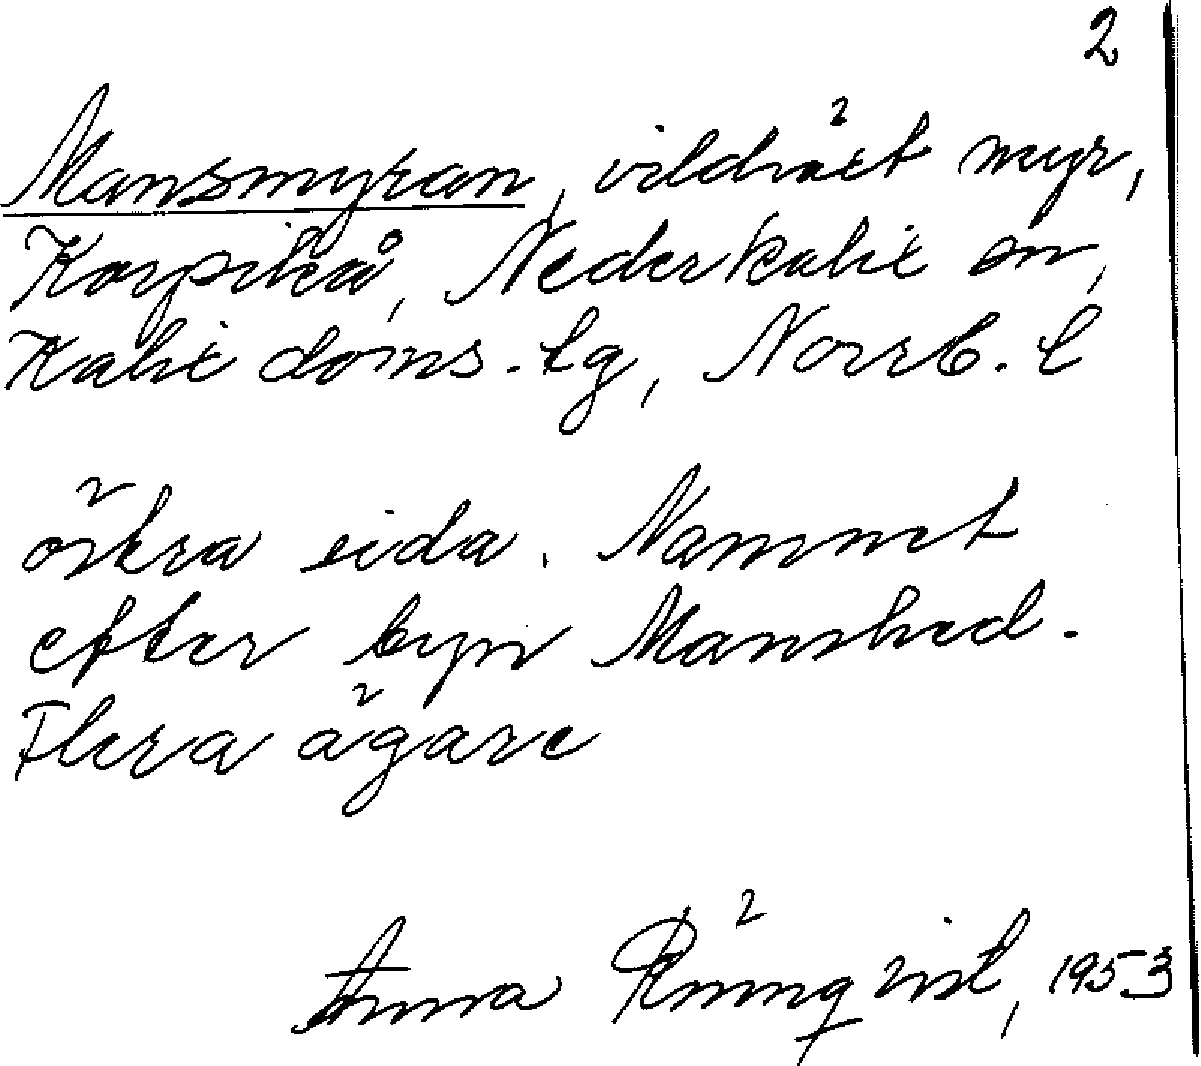 2
Mansmyran, vildväxt myr,
Korpikå, Nederkalix sn,
Kalix doms.lg, Norrb. l
östra sida. Namnet
efter byn Manshed.
Flera ägare
Anna Rönnqvist, 1953